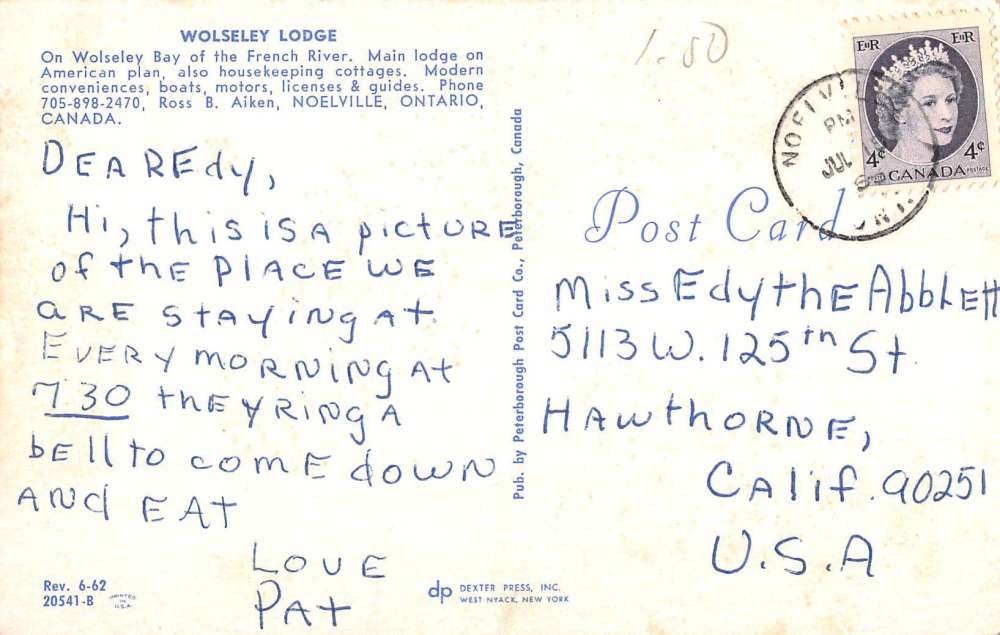 WOLSELEY LODGE
On Wolseley Bay of the French River. Main lodge on
American plan, also housekeeping cottages. Modern
conveniences, boats, motors, licenses & guides. Phone
705-898-2470, Ross B. Aiken, NOELVILLE, ONTARIO,
CANADA.
DEAR Edy,
Hi, this is A picture
of the PLACE WE
ARE staying At.
Every morning At
7:30 they ring A
bell to come down
And EAt
Love
PAt
Rev. 6-62
20541-B
PRINTED
IN
U.S.A.
dp DEXTER PRESS, INC.
WEST NYACK, NEW YORK
Pub. by Peterborough Post Card Co., Peterborough, Canada
1.50
EIIR EIIR
4¢ 4¢
POSTES CANADA POSTAGE
NOELVILLE
PM
JUL
ONT.
Post Card
Miss Edythe Abblett
5113 W. 125th St.
HAwthorne,
CAlif. 90251
U.S.A